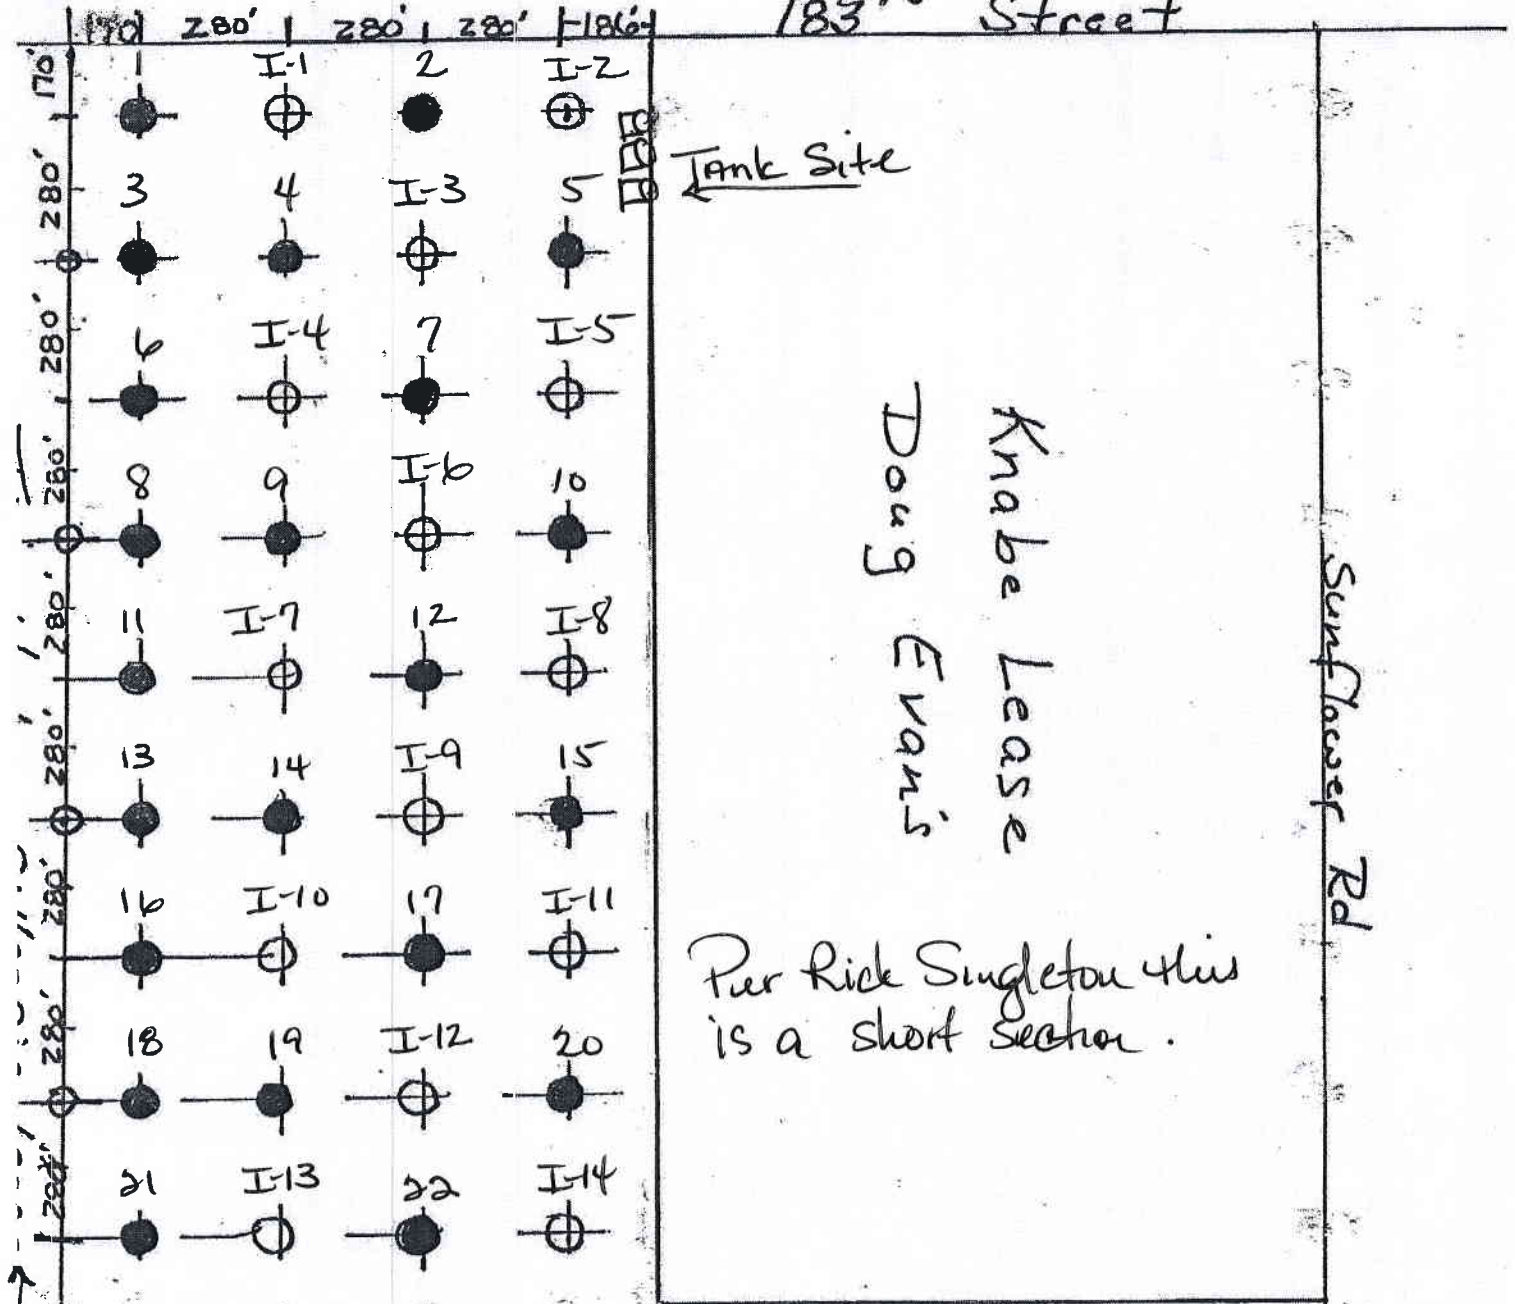 170 280' 280' 280' 186' 183rd Street
170'
1 I-1 2 I-2
Tank Site
280'
3 4 I-3 5
280'
6 I-4 7 I-5
280'
8 9 I-6 10
280'
11 I-7 12 I-8
280'
13 14 I-9 15
280'
16 I-10 17 I-11
280'
18 19 I-12 20
280'
21 I-13 22 I-14
Knabe Lease
Doug Evan's
Per Rick Singleton this
is a short section.
Sunflower Rd